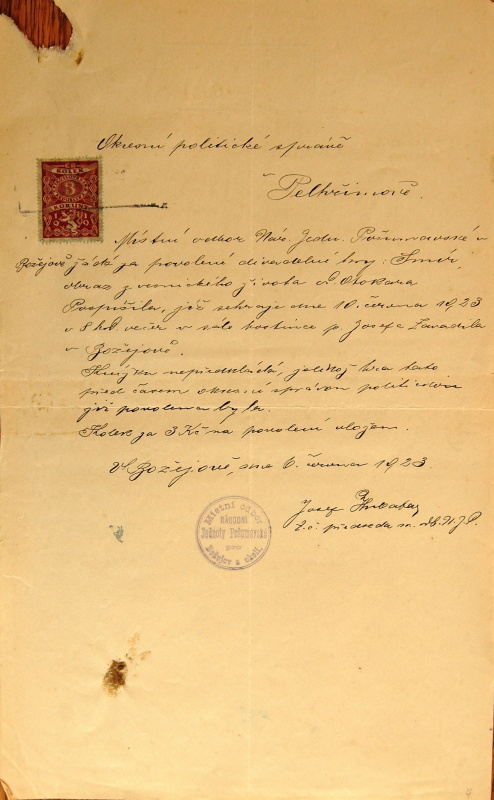 Okresní politické správě
v Pelhřimově.
ČS
KOLEK
3
KORUNY
1921
Místní odbor Nár. Jedn. Pošumavské v
Božejově žádá za povolení divadelní hry:
obraz z vesnického života od Otokara
Pospíšila, jež sehraje dne 10. června 1923
v 8 hod večer v sále hostince p. Josefa Zavadila
v Božejově.
Knížku nepředkládá, jelikož hra tato
před časem okresní správou politickou
již povolena byla.
Kolek za 3 Kč na povolení vložen.
V Božejově, dne 6. června 1923.
Josef
t. č. předseda m. Od. N. J. P.
Místní odbor
NÁRODNÍ
Jednoty Pošumavské
pro
Božejov a okolí.